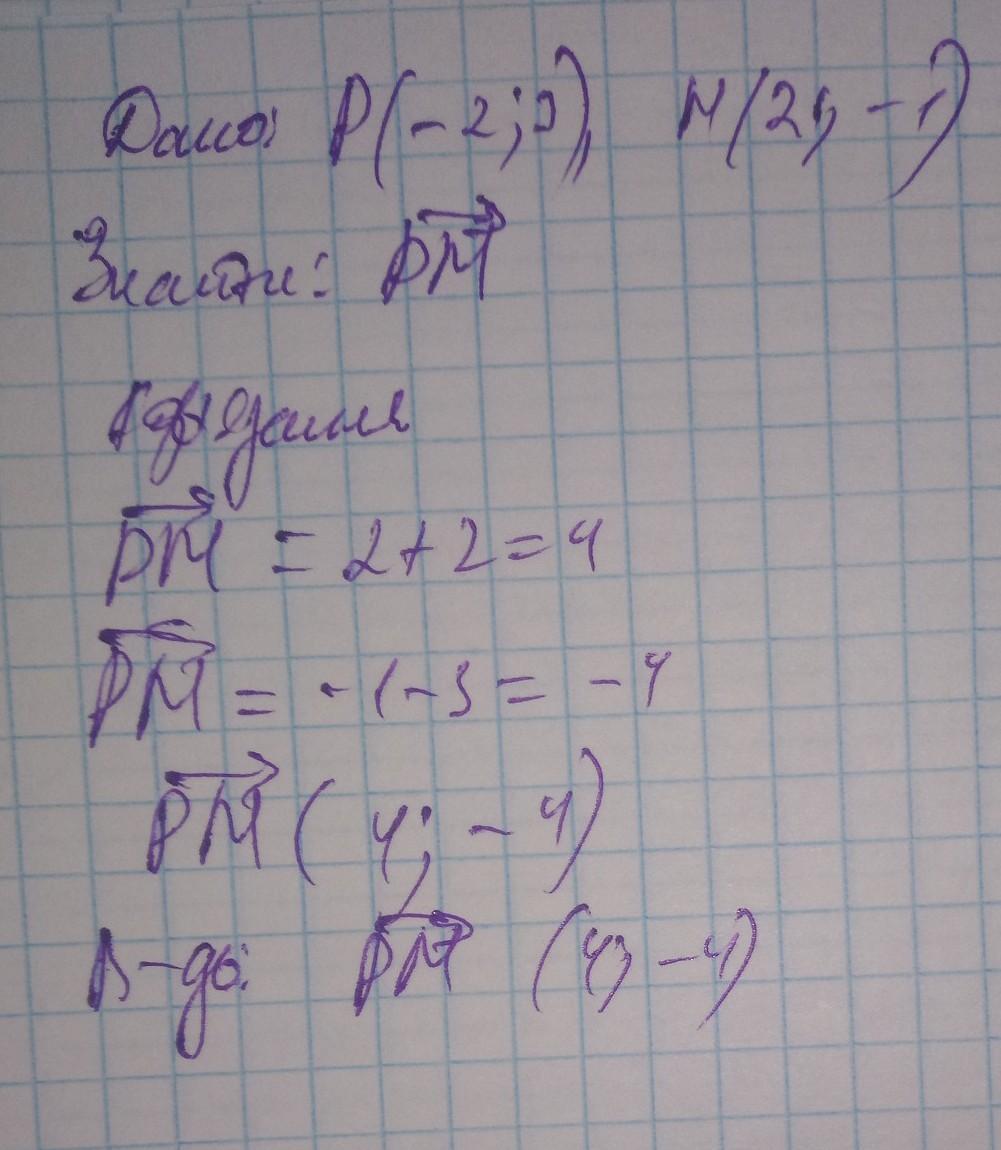 Дано: P(-2; 3), M(2; -1)
Знайти: PM
PM = 2+2=4
PM = -1-3= -4
PM (4; -4)
В-дь: PM (4; -4)